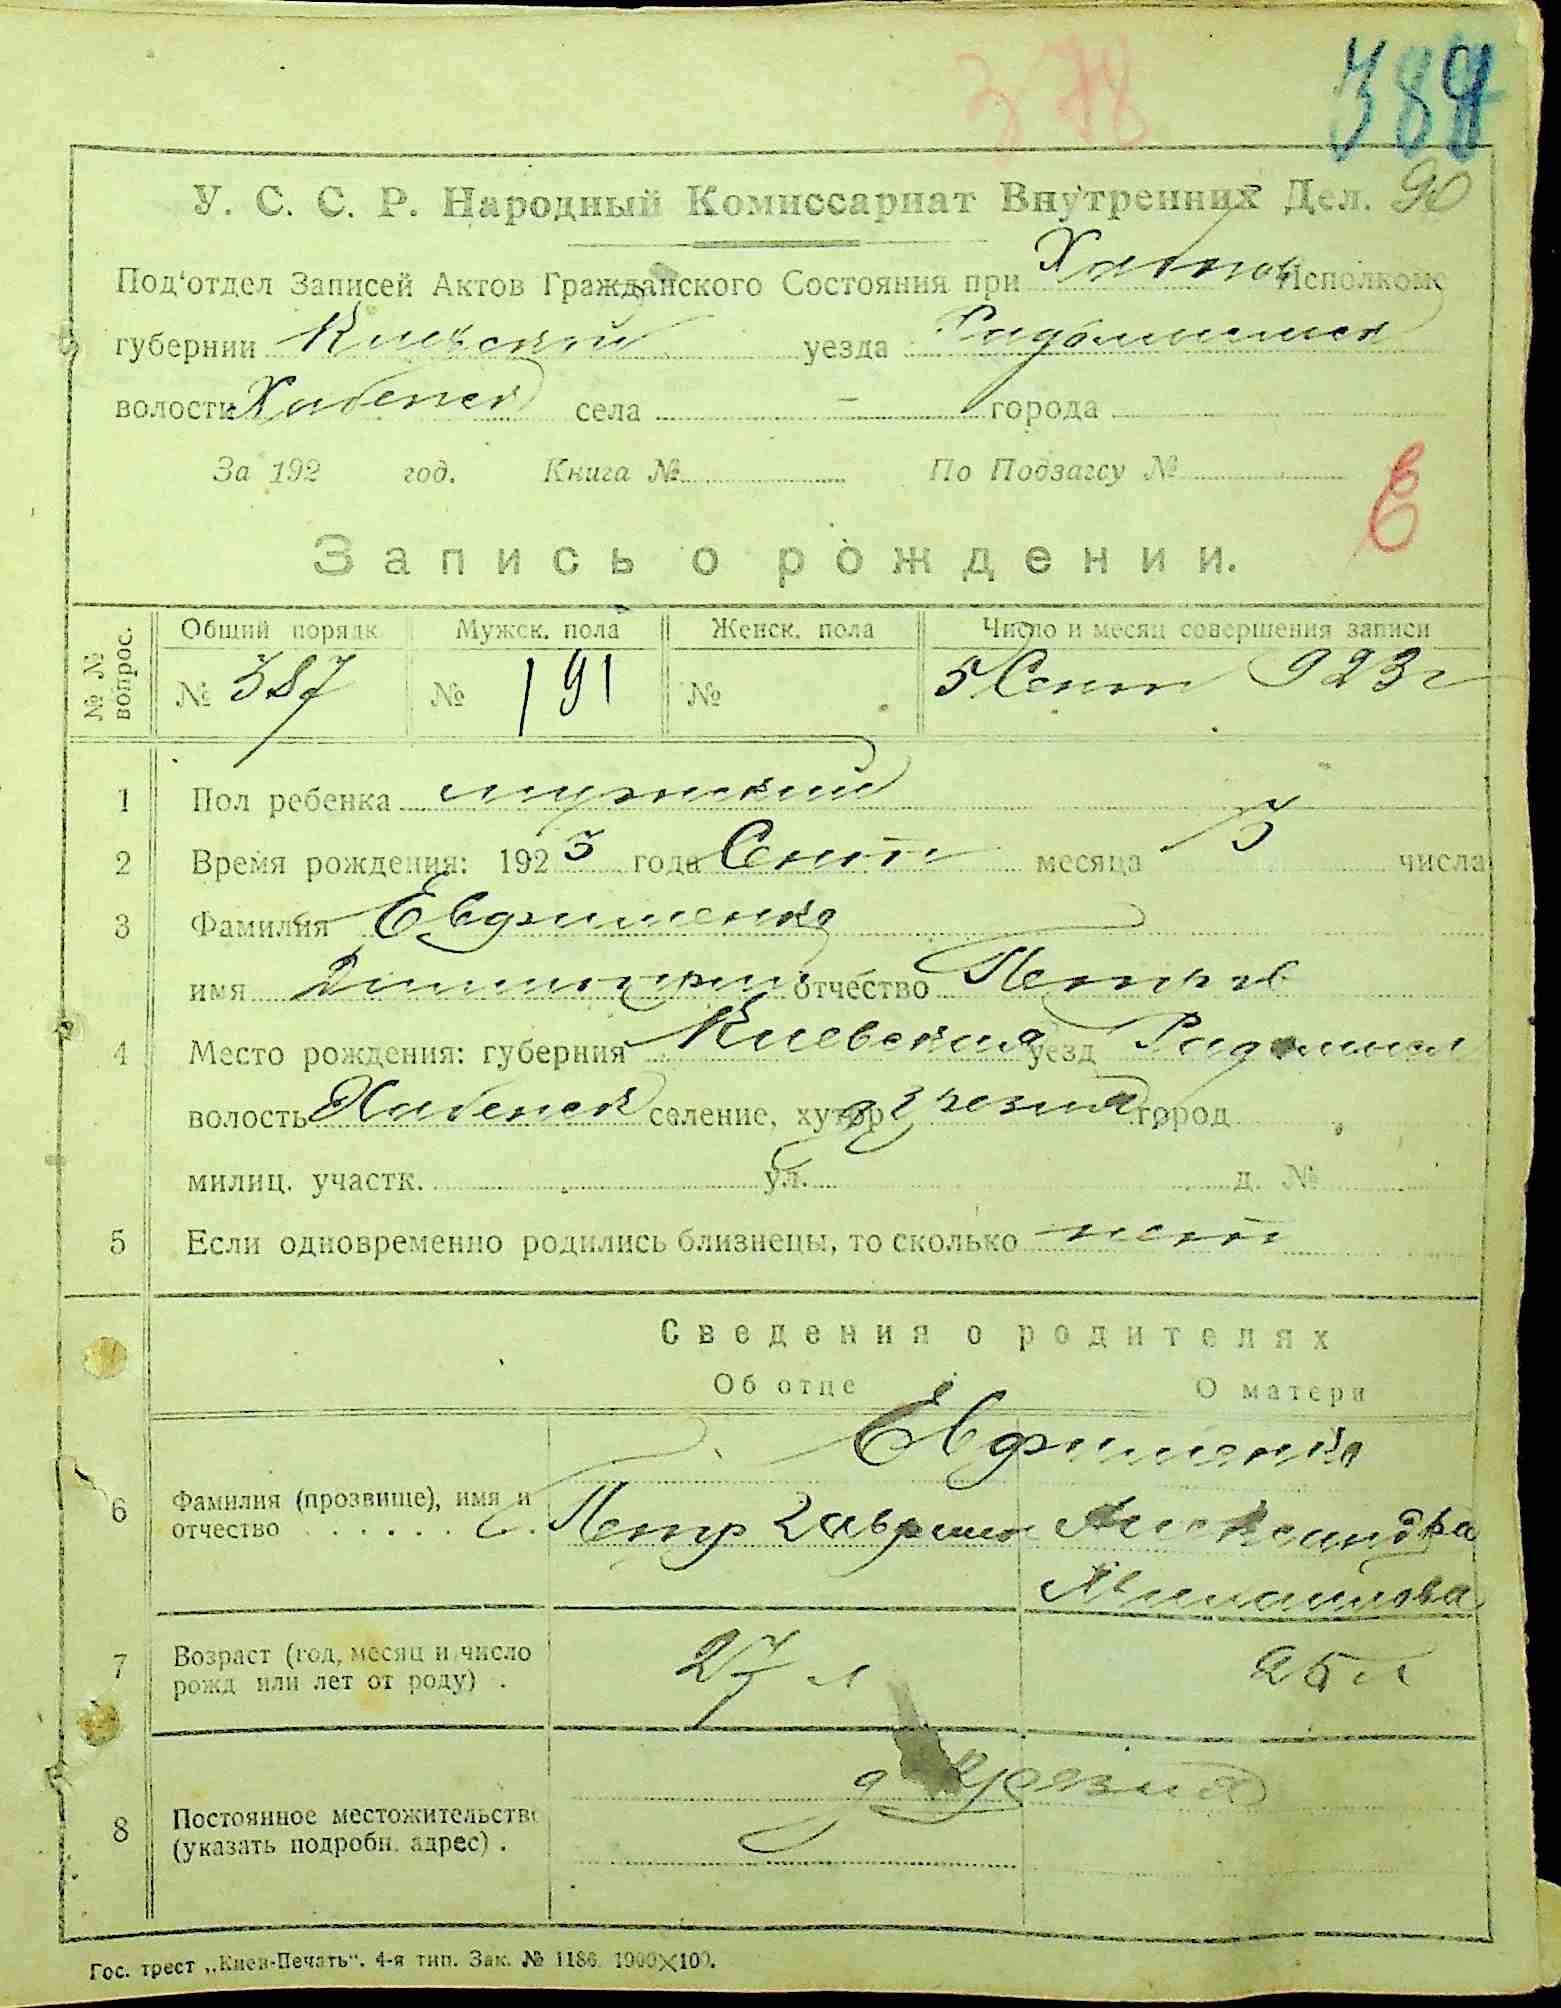 378 389
У. С. С. Р. Народный Комиссариат Внутренних Дел. 90
Под'отдел Записей Актов Гражданского Состояния при Хабенск Исполкоме
губернии Киевской уезда Радомысльск
волости Хабенск села — города
За 192 год. Книга № По Подзагсу №
Запись о рождении.
№ № вопрос. Общий порядк. Мужск. пола Женск. пола Число и месяц совершения записи
№ 387 № 191 № 5 Сент 923 г
1 Пол ребенка мужский
2 Время рождения: 1923 года Сент месяца 3 числа
3 Фамилия Евдфименко
имя Димитрий отчество Петров
4 Место рождения: губерния Киевская уезд Радомысл
волость Хабенск селение, хутор город
милиц. участк. ул. д. №
5 Если одновременно родились близнецы, то сколько нет
Сведения о родителях
Об отце О матери
Евфименко
6 Фамилия (прозвище), имя и отчество . . . . . . . Петр Гаврилов Александра
Михайлова
7 Возраст (год, месяц и число рожд или лет от роду) . 27 л 25 л
8 Постоянное местожительство (указать подробн. адрес) . д
Гос. трест „Киев-Печать“. 4-я тип. Зак. № 1186. 1000×100.